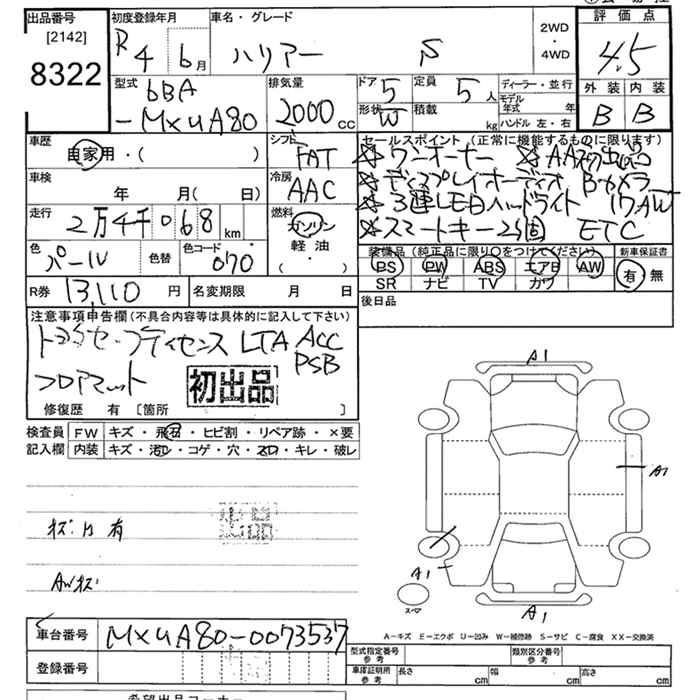 出品番号
[2142]
8322
初度登録年月
R 4 6月
車名・グレード
ハリアー S
2WD
・
4WD
評価点
4.5
外装 内装
B B
型式
6BA
-MXUA80
排気量
2000cc
ドア 5
定員 5人
形状 W
積載 kg
ディーラー・並行
モデル年式 年
ハンドル 左・右
車歴
自家用・( )
シフト
FAT
車検
年 月( 日)
冷房
AAC
走行
2万4千068km
燃料
ガソリン
軽油
( ・ )
色
パール
色替
色コード
070
セールスポイント(正常に機能するものに限ります)
☆ワンオーナー ☆AA初出品
☆ディスプレイオーディオ Bカメラ
☆3連LEDヘッドライト 17AW
☆スマートキー2個 ETC
装備品(純正品に限り○をつけてください)
PS PW ABS エアB AW
SR ナビ TV カワ
新車保証書
有 無
R券 13,110円
名変期限 月 日
後日品
注意事項申告欄(不具合内容等は具体的に記入して下さい)
トヨタセーフティセンス LTA ACC
PSB
フロアマット
初出品
修復歴 有 [箇所 ]
検査員記入欄
FW キズ・飛石・ヒビ割・リペア跡・×要
内装 キズ・汚レ・コゲ・穴・スレ・キレ・破レ
出品
キズ・凹 有
AWキズ
A1
A1
A1
A1
スペア
A-キズ E-エクボ U-凹み W-補修跡 S-サビ C-腐食 XX-交換済
車台番号 MXUA80-0073537
登録番号
型式指定番号
参考
類別区分番号
参考
車庫証明用
参考
長さ cm
幅 cm
高さ cm
希望出品コーナー